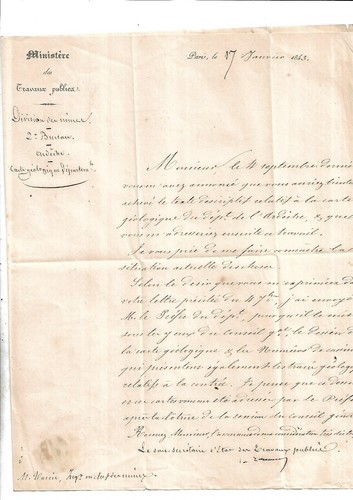 Ministère
des
Travaux publics.
Division des mines.
2e Bureau
Ardèche
Carte géologique départem.le
Paris, le 17 Janvier 1843.
Monsieur, le 4 septembre dernier
vous m'avez annoncé que vous
achevé le texte descriptif relatif à la carte
géologique du dépt. de l'Ardèche, & que
vous m'adresseriez ensuite ce travail.
Je vous prie de me faire connaître la
situation actuelle des choses.
Selon le désir que vous m'exprimiez
votre lettre précitée du 4 7bre, j'ai envoyé
M. le Préfet du dépt. pour qu'il le
sous les yeux du Conseil gal. le
la carte géologique, & les
qui présentent également les tracés
relatifs à la contrée. Je pense que
ces cartes vous ont été adressées par le Préfet
après la clôture de la session du Conseil
Recevez, Monsieur, l'assurance de ma considération
Le sous-secrétaire d'État des Travaux publics
M. ingr. en chef des mines